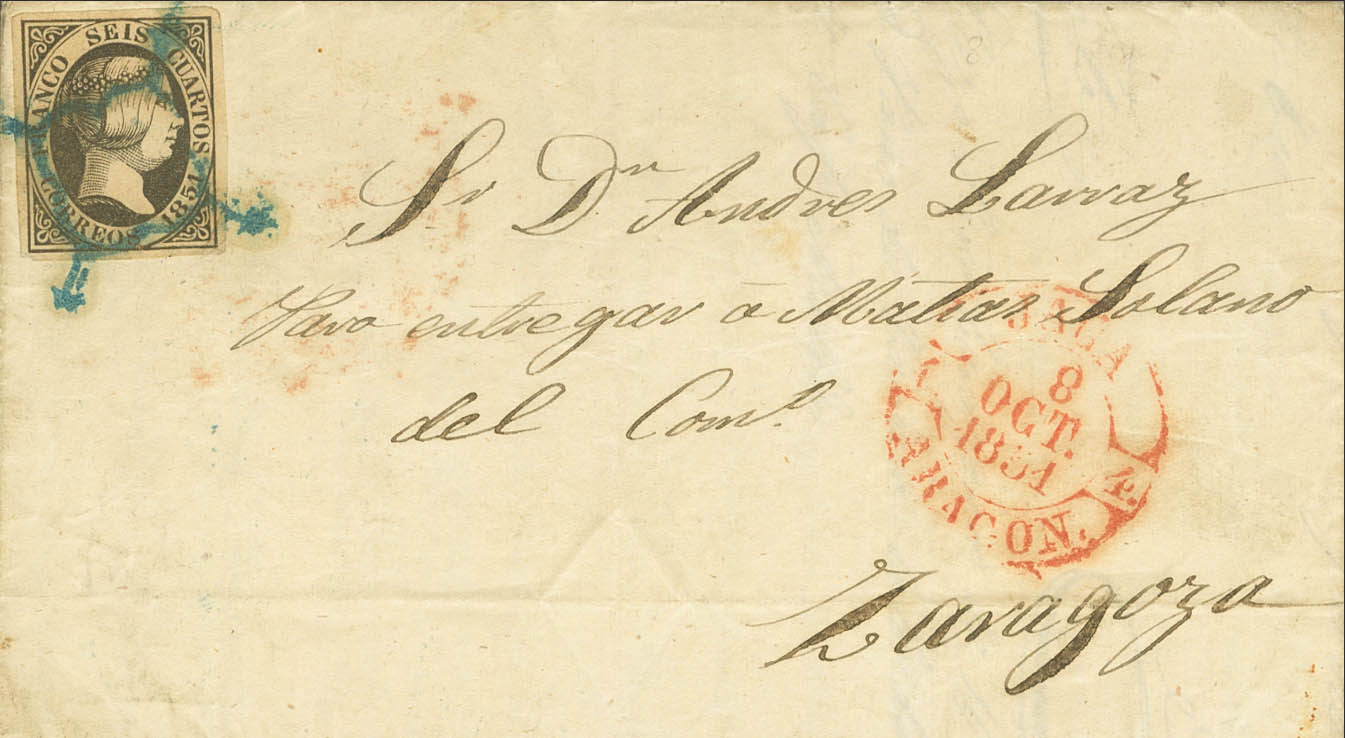 FRANCO SEIS CUARTOS
CORREOS 1851
Sr Dn Andres Larraz
Para entregar á Matias Solano
del Como
JACA
8
OCT.
1851
ARAGON.
4.
Zaragoza